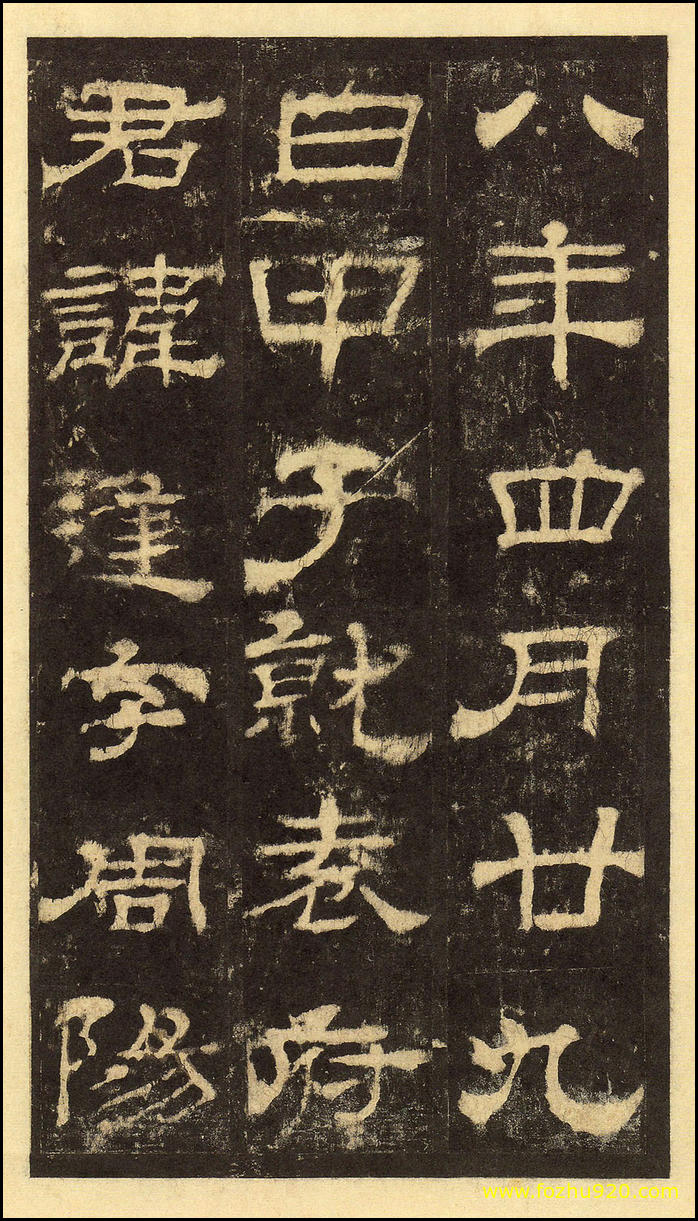 八年四月廿九
日甲子就袁府
君諱逢字周陽
www.fozhu920.com